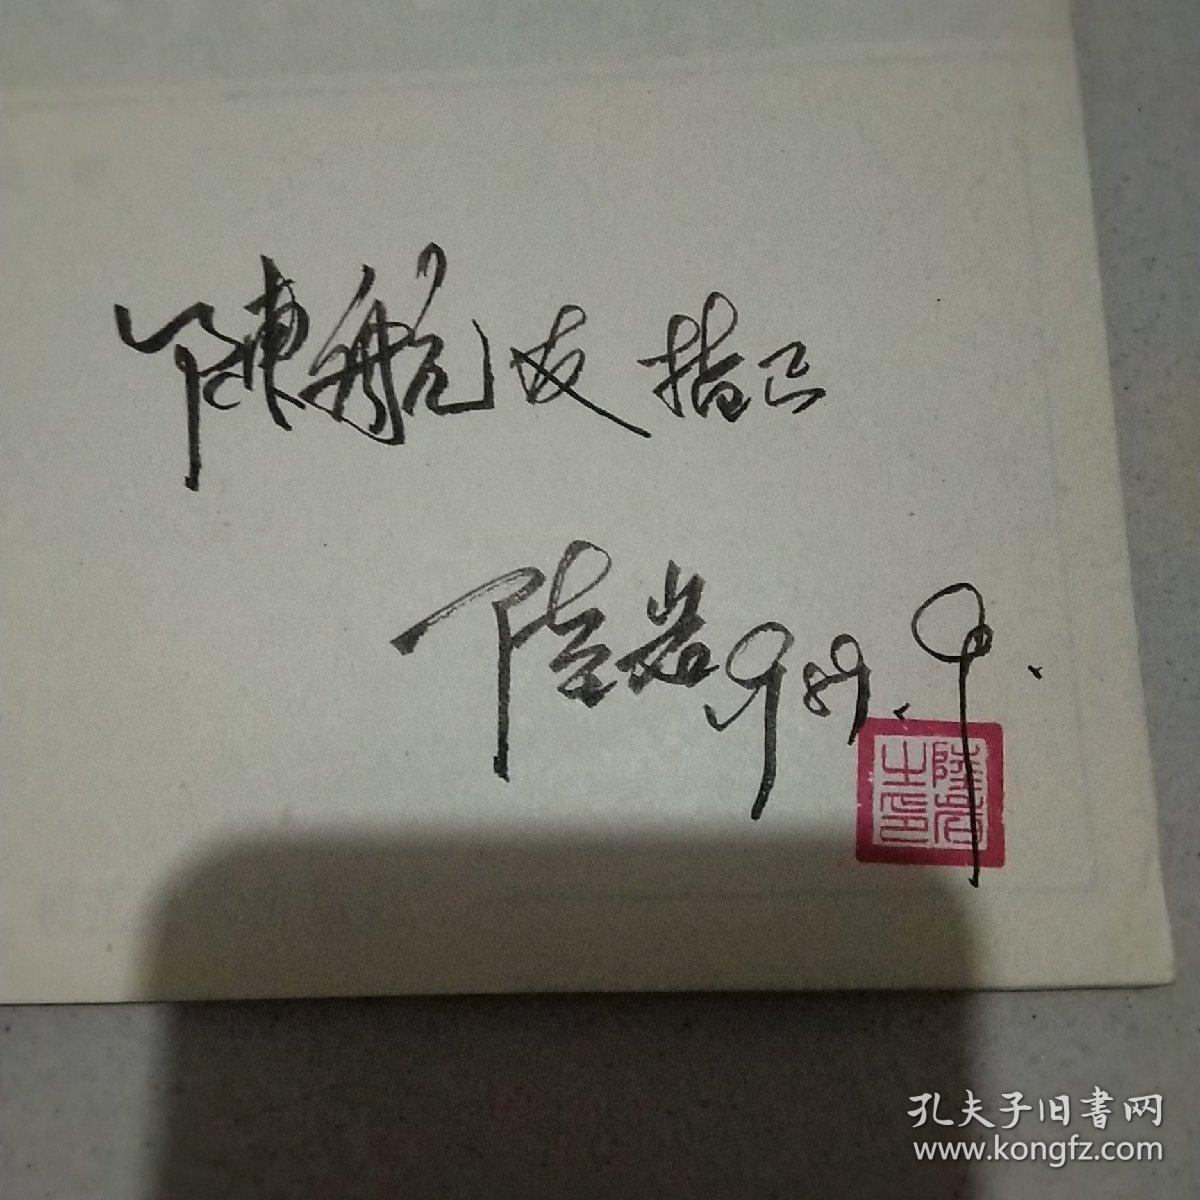 陳航友指正
陸岩 989.9.
陸岩之印
孔夫子旧書网
www.kongfz.com